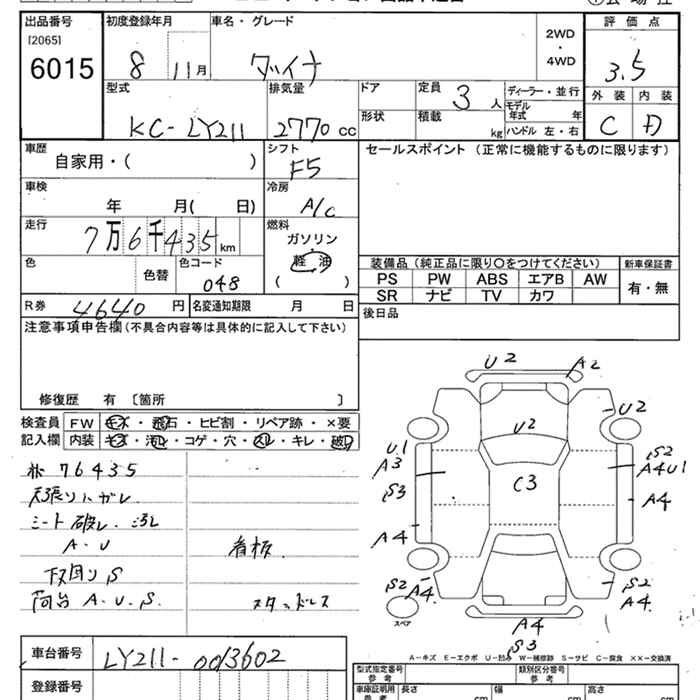 出品番号 初度登録年月 車名・グレード 評価点
[2065]
6015 8 11月 ダイナ 2WD ・ 4WD 3.5
型式 排気量 ドア 定員 3人 ディーラー・並行 外装 内装
KC-LY211 2770cc 形状 積載 kg モデル年式 年 C D
ハンドル 左・右
車歴 シフト セールスポイント (正常に機能するものに限ります)
自家用・( ) F5
車検 冷房
年 月( 日) A/C
走行 燃料
7万6千435km ガソリン・軽油
( )
色 色替 色コード 048
装備品(純正品に限り○をつけてください) 新車保証書
PS PW ABS エアB AW 有・無
SR ナビ TV カワ
R券 4640円 名変通知期限 月 日 後日品
注意事項申告欄(不具合内容等は具体的に記入して下さい)
修復歴 有 〔箇所 〕
検査員 FW キズ・飛石・ヒビ割・リペア跡・×要
記入欄 内装 キズ・汚れ・コゲ・穴・スレ・キレ・破れ
76435
天張りハガレ
シート破レ.汚レ
A.U 看板
下回りS
荷台 A.U.S. スタッドレス
U2 A2
U2
U2
U1 A3 S2 A4U1
S3 C3 A4
A4
S2 A4 S2 A4
スペア A4
S3
A-キズ E-エクボ U-凹み W-補修跡 S-サビ C-腐食 ××-交換済
車台番号 LY211-0013602
型式指定番号 類別区分番号
登録番号 車庫証明用参考 長さ cm 幅 cm 高さ cm